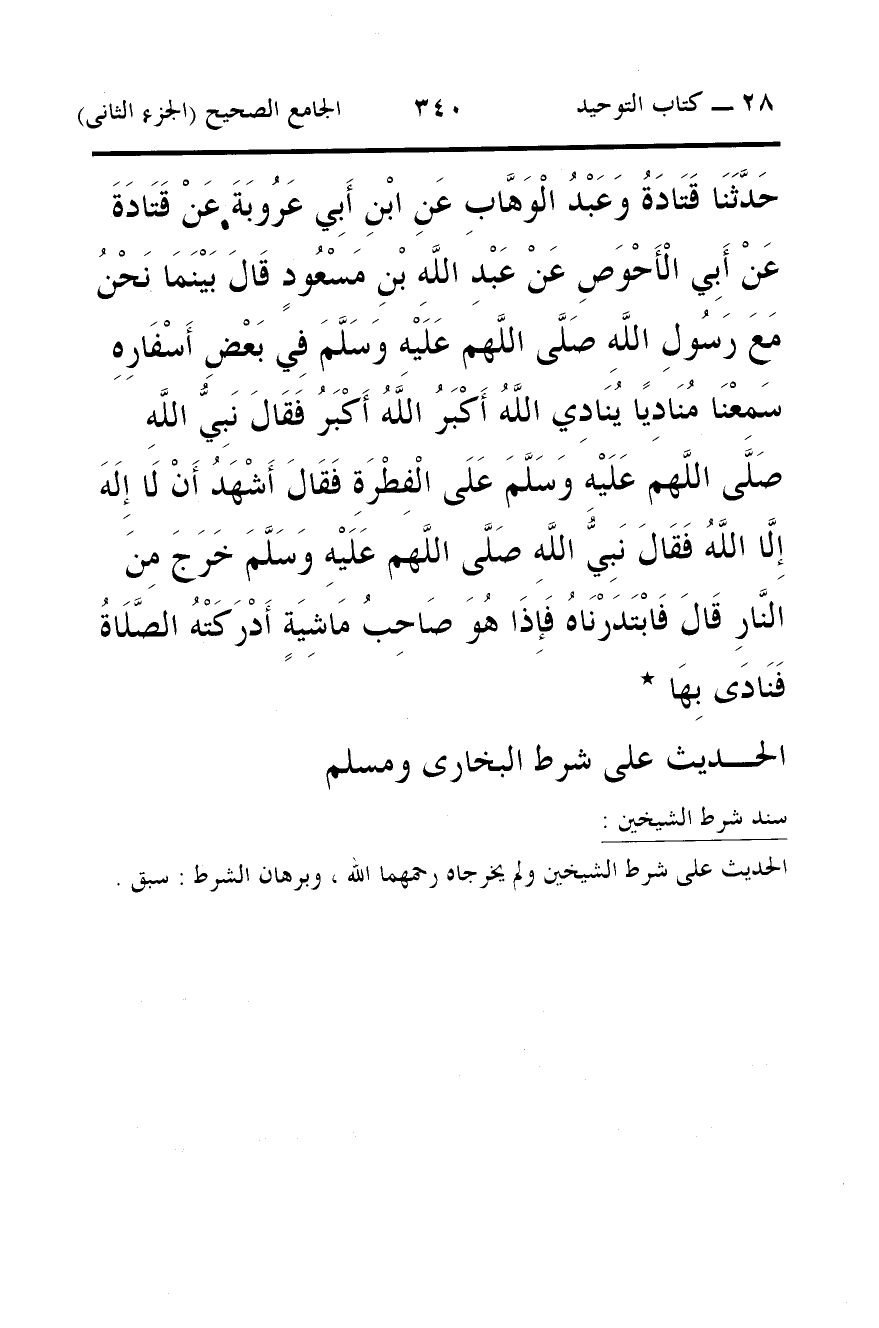 ٢٨ ــ كتاب التوحيد ٣٤٠ الجامع الصحيح (الجزء الثانى)
حَدَّثَنَا قَتَادَةُ وَعَبْدُ الْوَهَّابِ عَنِ ابْنِ أَبِي عَرُوبَةَ عَنْ قَتَادَةَ
عَنْ أَبِي الْأَحْوَصِ عَنْ عَبْدِ اللَّهِ بْنِ مَسْعُودٍ قَالَ بَيْنَمَا نَحْنُ
مَعَ رَسُولِ اللَّهِ صَلَّى اللَّهم عَلَيْهِ وَسَلَّمَ فِي بَعْضِ أَسْفَارِهِ
سَمِعْنَا مُنَادِيًا يُنَادِي اللَّهُ أَكْبَرُ اللَّهُ أَكْبَرُ فَقَالَ نَبِيُّ اللَّهِ
صَلَّى اللَّهم عَلَيْهِ وَسَلَّمَ عَلَى الْفِطْرَةِ فَقَالَ أَشْهَدُ أَنْ لَا إِلَهَ
إِلَّا اللَّهُ فَقَالَ نَبِيُّ اللَّهِ صَلَّى اللَّهم عَلَيْهِ وَسَلَّمَ خَرَجَ مِنَ
النَّارِ قَالَ فَابْتَدَرْنَاهُ فَإِذَا هُوَ صَاحِبُ مَاشِيَةٍ أَدْرَكَتْهُ الصَّلَاةُ
فَنَادَى بِهَا *
الحـــديث على شرط البخارى ومسلم
سند شرط الشيخين :
الحديث على شرط الشيخين ولم يخرجاه رحمهما الله ، وبرهان الشرط : سبق .